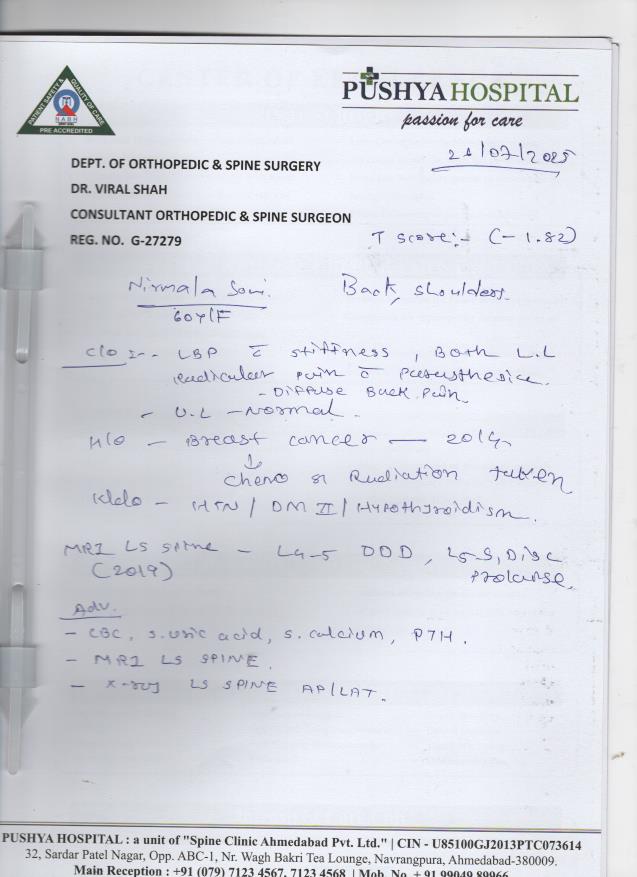 PATIENT SAFETY & QUALITY OF CARE
N A B H
PRE ACCREDITED
PUSHYA HOSPITAL
passion for care
21/07/2025
DEPT. OF ORTHOPEDIC & SPINE SURGERY
DR. VIRAL SHAH
CONSULTANT ORTHOPEDIC & SPINE SURGEON
REG. NO. G-27279
T score:- (-1.82)
Nirmala Soni. Back, shoulders.
60y/F
C/O :- - LBP c̄ stiffness, Both L.L
Radicular pain c̄ Paraesthesia.
- Diffuse Back Pain
- U.L - Normal.
H/O - Breast cancer - 2014
↓
Chemo & Radiation taken
K/c/o - HTN / DM II / Hypothyroidism.
MRI LS spine - L4-5 DDD, L5-S1 Disc
(2019) prolapse.
Adv.
- CBC, S. uric acid, S. calcium, PTH.
- MRI LS SPINE.
- X-ray LS SPINE AP/LAT.
PUSHYA HOSPITAL : a unit of "Spine Clinic Ahmedabad Pvt. Ltd." | CIN - U85100GJ2013PTC073614
32, Sardar Patel Nagar, Opp. ABC-1, Nr. Wagh Bakri Tea Lounge, Navrangpura, Ahmedabad-380009.
Main Reception : +91 (079) 7123 4567, 7123 4568 | Mob. No. +91 99049 89966